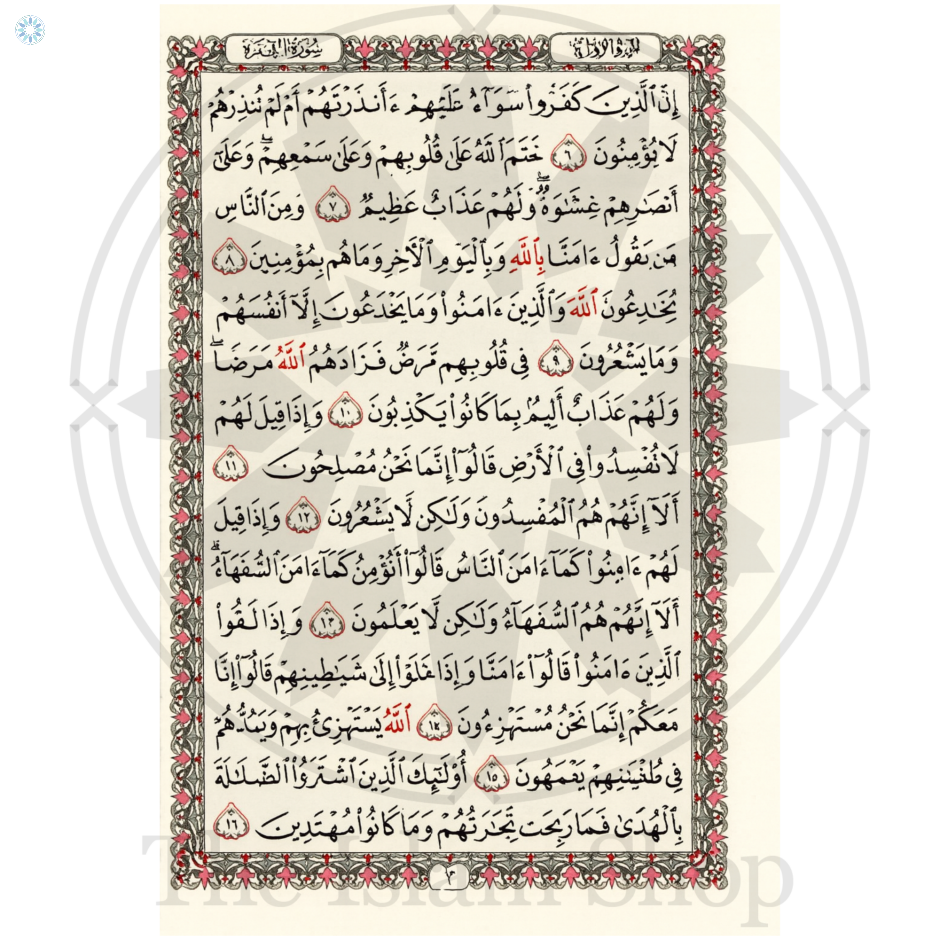 سُورَةُ الْبَقَرَةِ
الجُزْءُ الأَوَّلُ
إِنَّ ٱلَّذِينَ كَفَرُوا۟ سَوَآءٌ عَلَيْهِمْ ءَأَنذَرْتَهُمْ أَمْ لَمْ تُنذِرْهُمْ
لَا يُؤْمِنُونَ ٦ خَتَمَ ٱللَّهُ عَلَىٰ قُلُوبِهِمْ وَعَلَىٰ سَمْعِهِمْ ۖ وَعَلَىٰٓ
أَبْصَٰرِهِمْ غِشَٰوَةٌ ۖ وَلَهُمْ عَذَابٌ عَظِيمٌ ٧ وَمِنَ ٱلنَّاسِ
مَن يَقُولُ ءَامَنَّا بِٱللَّهِ وَبِٱلْيَوْمِ ٱلْأَخِرِ وَمَا هُم بِمُؤْمِنِينَ ٨
يُخَٰدِعُونَ ٱللَّهَ وَٱلَّذِينَ ءَامَنُوا۟ وَمَا يَخْدَعُونَ إِلَّآ أَنفُسَهُمْ
وَمَا يَشْعُرُونَ ٩ فِى قُلُوبِهِم مَّرَضٌ فَزَادَهُمُ ٱللَّهُ مَرَضًا ۖ
وَلَهُمْ عَذَابٌ أَلِيمٌۢ بِمَا كَانُوا۟ يَكْذِبُونَ ١٠ وَإِذَا قِيلَ لَهُمْ
لَا تُفْسِدُوا۟ فِى ٱلْأَرْضِ قَالُوٓا۟ إِنَّمَا نَحْنُ مُصْلِحُونَ ١١
أَلَآ إِنَّهُمْ هُمُ ٱلْمُفْسِدُونَ وَلَٰكِن لَّا يَشْعُرُونَ ١٢ وَإِذَا قِيلَ
لَهُمْ ءَامِنُوا۟ كَمَآ ءَامَنَ ٱلنَّاسُ قَالُوٓا۟ أَنُؤْمِنُ كَمَآ ءَامَنَ ٱلسُّفَهَآءُ ۗ
أَلَآ إِنَّهُمْ هُمُ ٱلسُّفَهَآءُ وَلَٰكِن لَّا يَعْلَمُونَ ١٣ وَإِذَا لَقُوا۟
ٱلَّذِينَ ءَامَنُوا۟ قَالُوٓا۟ ءَامَنَّا وَإِذَا خَلَوْا۟ إِلَىٰ شَيَٰطِينِهِمْ قَالُوٓا۟ إِنَّا
مَعَكُمْ إِنَّمَا نَحْنُ مُسْتَهْزِءُونَ ١٤ ٱللَّهُ يَسْتَهْزِئُ بِهِمْ وَيَمُدُّهُمْ
فِى طُغْيَٰنِهِمْ يَعْمَهُونَ ١٥ أُو۟لَٰٓئِكَ ٱلَّذِينَ ٱشْتَرَوُا۟ ٱلضَّلَٰلَةَ
بِٱلْهُدَىٰ فَمَا رَبِحَت تِّجَٰرَتُهُمْ وَمَا كَانُوا۟ مُهْتَدِينَ ١٦
The Islam Shop
٣